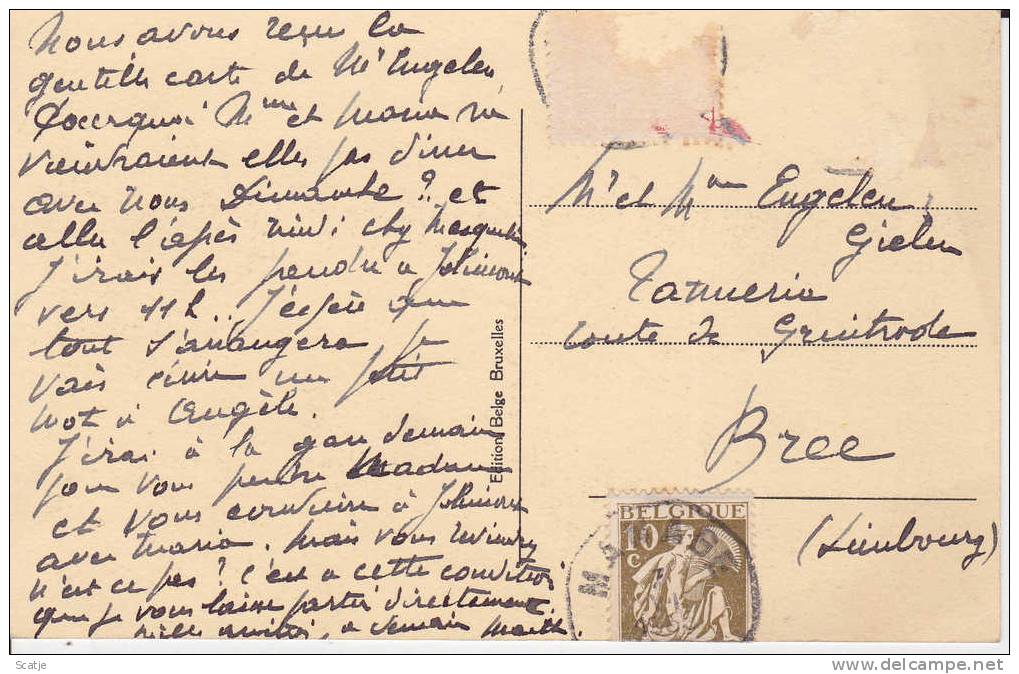 Nous avons reçu la
gentille carte de Mr Engelen
Pourquoi Mme et Maria ne
viendraient elles pas diner
avec nous Dimanche ? et
aller l'après midi chez
J'irais les prendre à Jolimont
vers 11 h.. J'espère que
tout s'arrangera je
vais écrire un petit
mot à Angèle.
J'irai à la gare demain
pour vous prendre Madame
et vous conduire à Jolimont
avec Maria. Mais vous reviendrez
n'est ce pas ? C'est à cette condition
que je vous laisse partir directement.
mille amitiés, à demain
Edition Belge Bruxelles
Mr et Mme Engelen
Gielen
Tannerie
route de Gruitrode
Bree
(Limbourg)
BELGIQUE
10
c
Scatje
www.delcampe.net